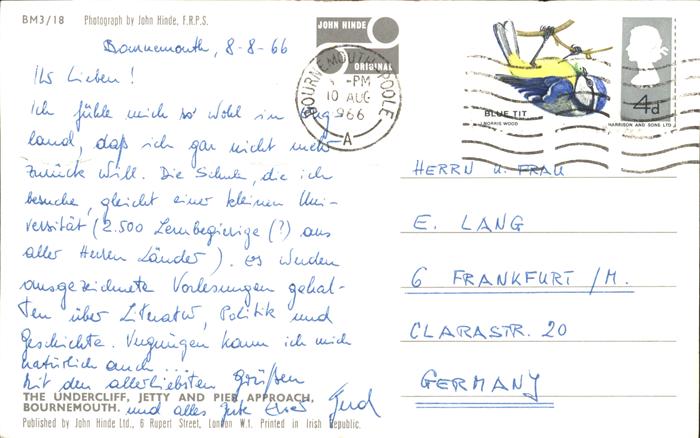 BM3/18 Photograph by John Hinde, F.R.P.S.
Bournemouth, 8-8-66
Ihr Lieben!
Ich fühle mich so wohl in Eng-
land, daß ich gar nicht mehr
zurück will. Die Schule, die ich
besuche, gleicht einer kleinen Uni-
versität (2.500 Lernbegierige (?) aus
aller Herren Länder). Es werden
ausgezeichnete Vorlesungen gehal-
ten über Literatur, Politik und
Geschichte. Vergnügen kann ich mich
natürlich auch...
Mit den allerliebsten Grüßen
und alles Gute Euer Gerd
THE UNDERCLIFF, JETTY AND PIER APPROACH,
BOURNEMOUTH.
Published by John Hinde Ltd., 6 Rupert Street, London W.1. Printed in Irish Republic.
JOHN HINDE
ORIGINAL
BOURNEMOUTH-POOLE
-PM
10 AUG
1966
A
BLUE TIT
NORRIS WOOD
4d
HARRISON AND SONS LTD
HERRN u. FRAU
E. LANG
6 FRANKFURT/M.
CLARASTR. 20
GERMANY